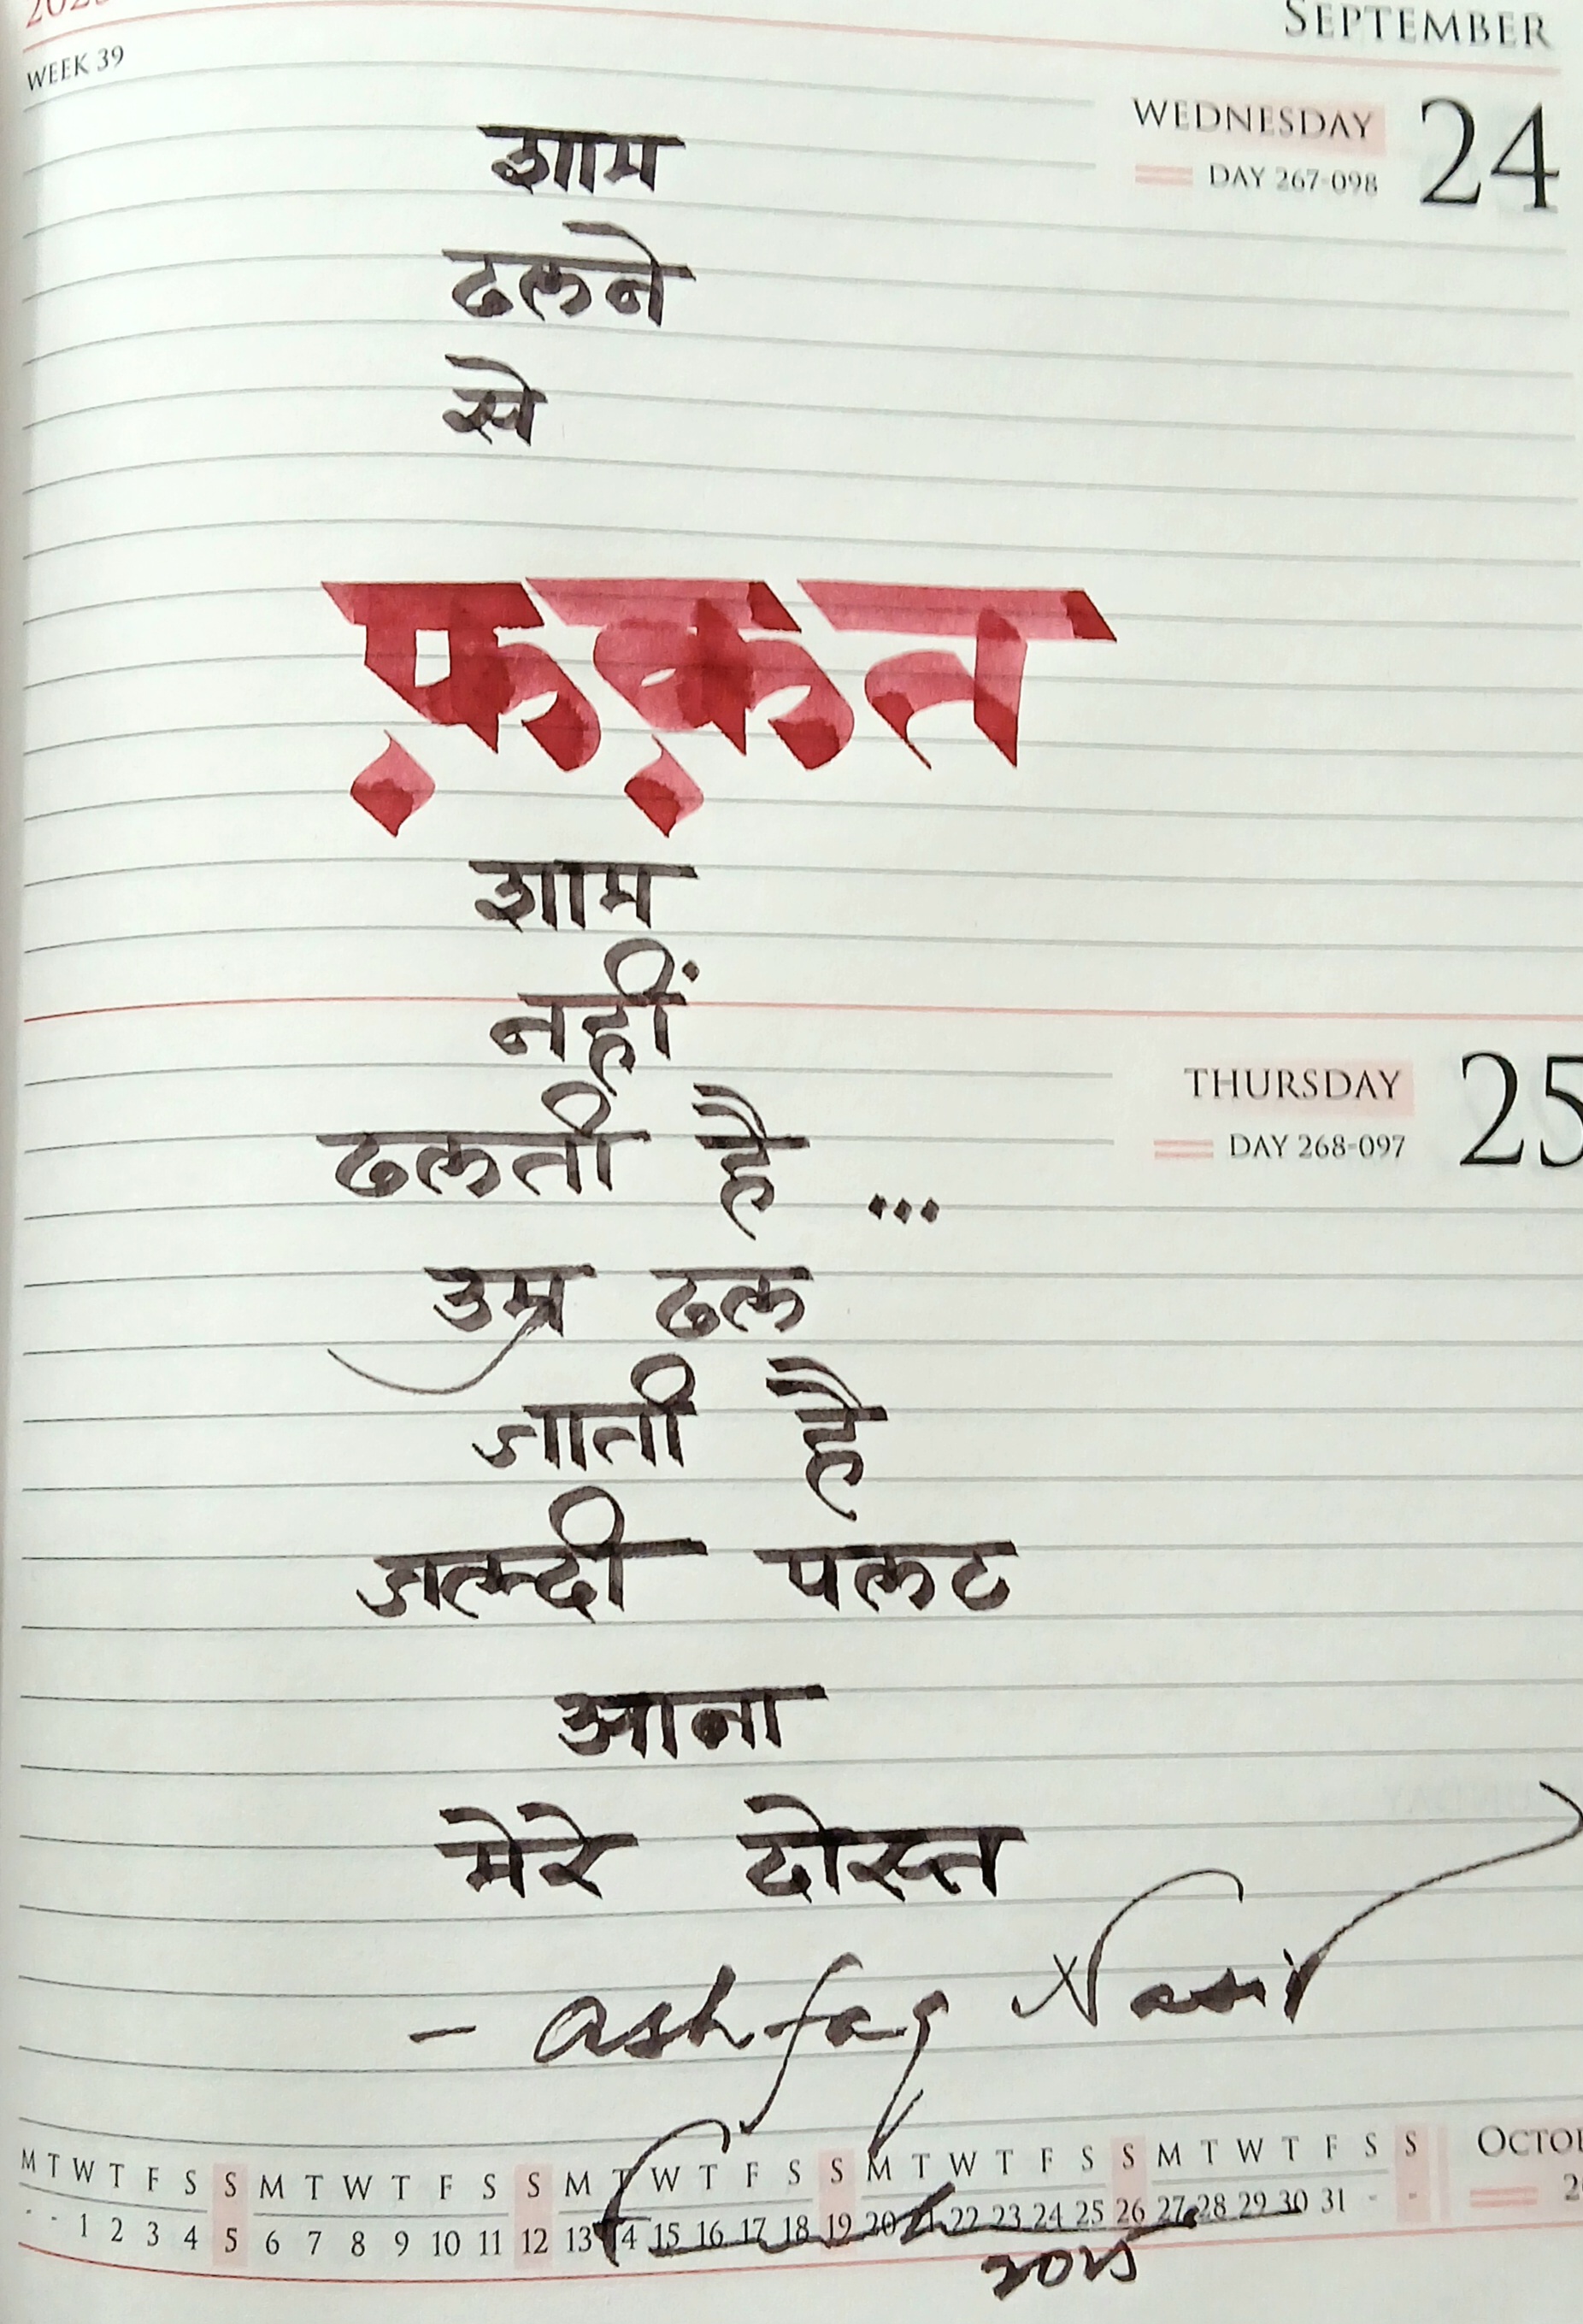 SEPTEMBER
WEEK 39
WEDNESDAY 24
DAY 267-098
शाम
ढलने
से
फ़क़त
शाम
नहीं
THURSDAY 25
DAY 268-097
ढलती है ...
उम्र ढल
जाती है
जल्दी पलट
आना
मेरे दोस्त
- Ashfaq Nasir
M T W T F S S M T W T F S S M T W T F S S M T W T F S S M T W T F S S
- - 1 2 3 4 5 6 7 8 9 10 11 12 13 14 15 16 17 18 19 20 21 22 23 24 25 26 27 28 29 30 31 - -
2025